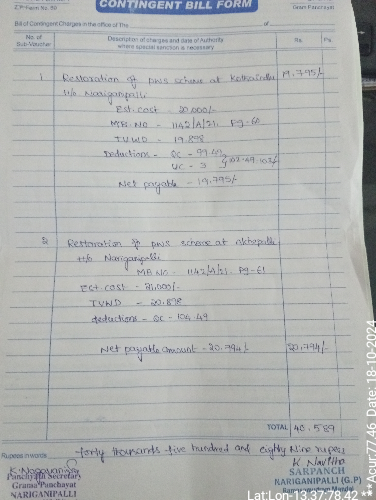 CONTINGENT BILL FORM
Z.P. Form No. 50
Gram Panchayat
Bill of Contingent Charges in the office of The of
No. of Sub-Voucher
Description of charges and date of Authority where special sanction is necessary
Rs. Ps.
1 Restoration of PWS scheme at 19.795/-
H/o Nariganipalli
Est. cost - 20,000/-
M.B. NO - 1142/A/21. Pg-60
TVWD - 19.898
Deductions - QC - 99.49
UC - 3
Net payable - 19.795/-
2 Restoration of PWS scheme at
H/o Nariganipalli
MB NO - 1142/A/21. Pg-61
Est. cost - 21,000/-
TVWD - 20.898
deductions - QC - 104.49
Net payable amount - 20.794/- 20.794/-
TOTAL 40.589
Rupees in words forty thousands five hundred and eighty Nine rupees
Panchayat Secretary
Grama Panchayat
NARIGANIPALLI
SARPANCH
NARIGANIPALLI (G.P)
Mandal
Lat:Lon-13.37,78.42
**Acur:77.46 Date:18-10-2024